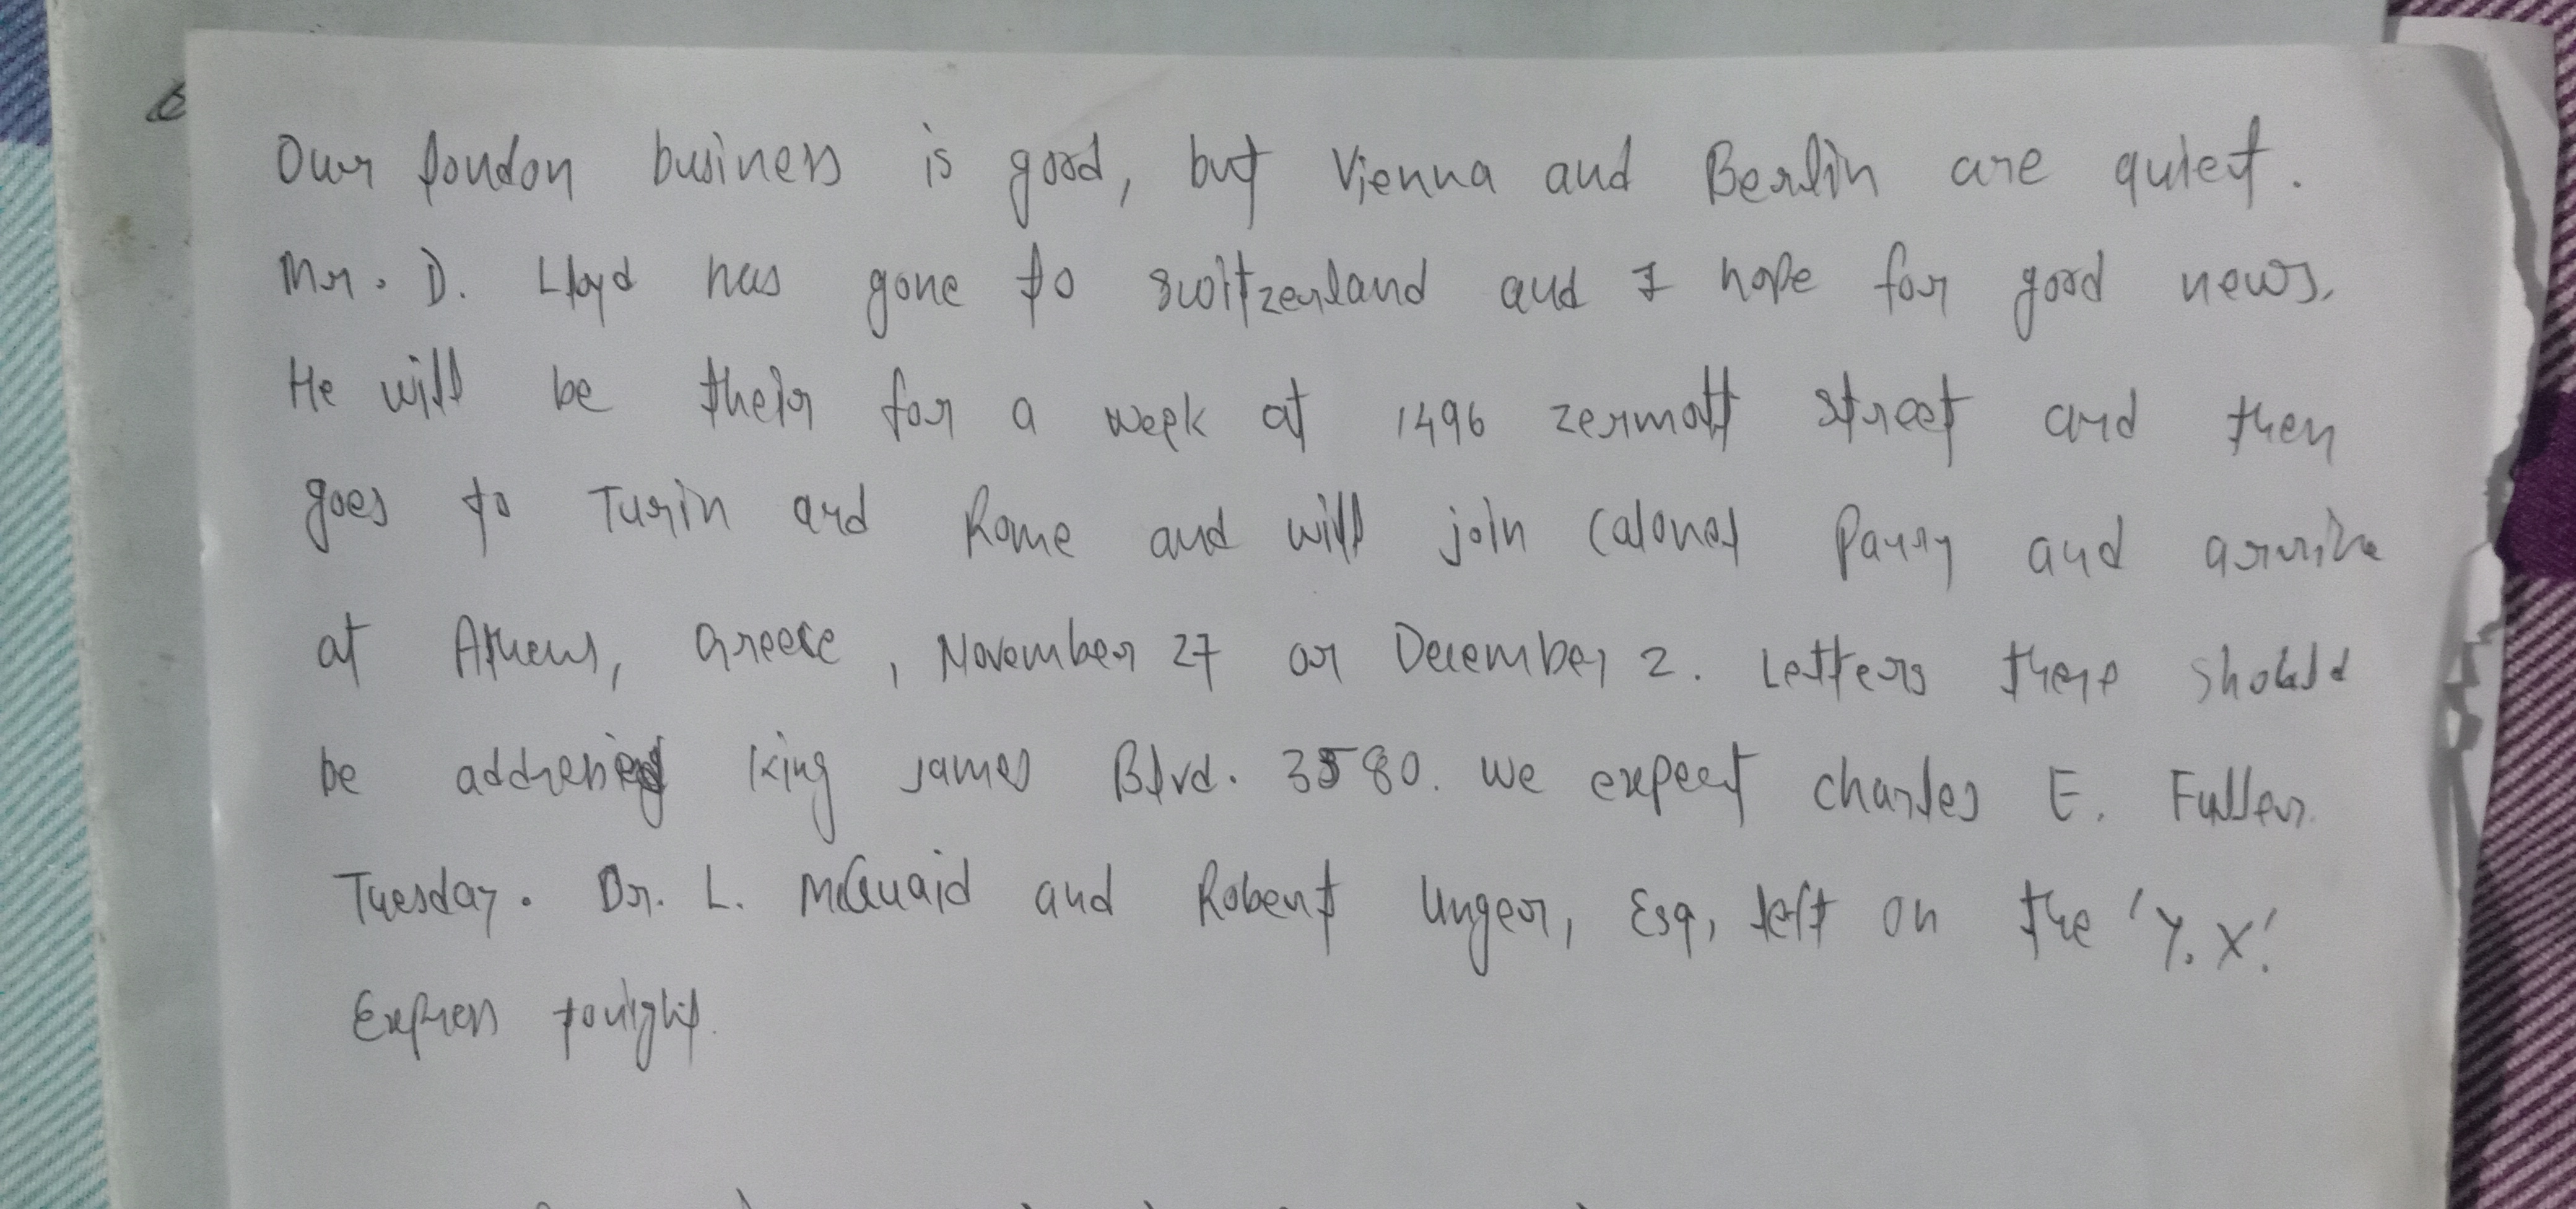 Our London business is good, but Vienna and Berlin are quiet.
Mr. D. Lloyd has gone to switzerland and I hope for good news.
He will be their for a week at 1496 zermott street and then
goes to Turin and Rome and will join Colonel Parry and arrive
at Athens, Greece, November 27 or December 2. Letters there should
be addressed king James Blvd. 3580. We expect charles E. Fuller
Tuesday. Dr. L. McQuaid and Robert Unger, Esq, left on the 'Y.X.'
Express tonight.